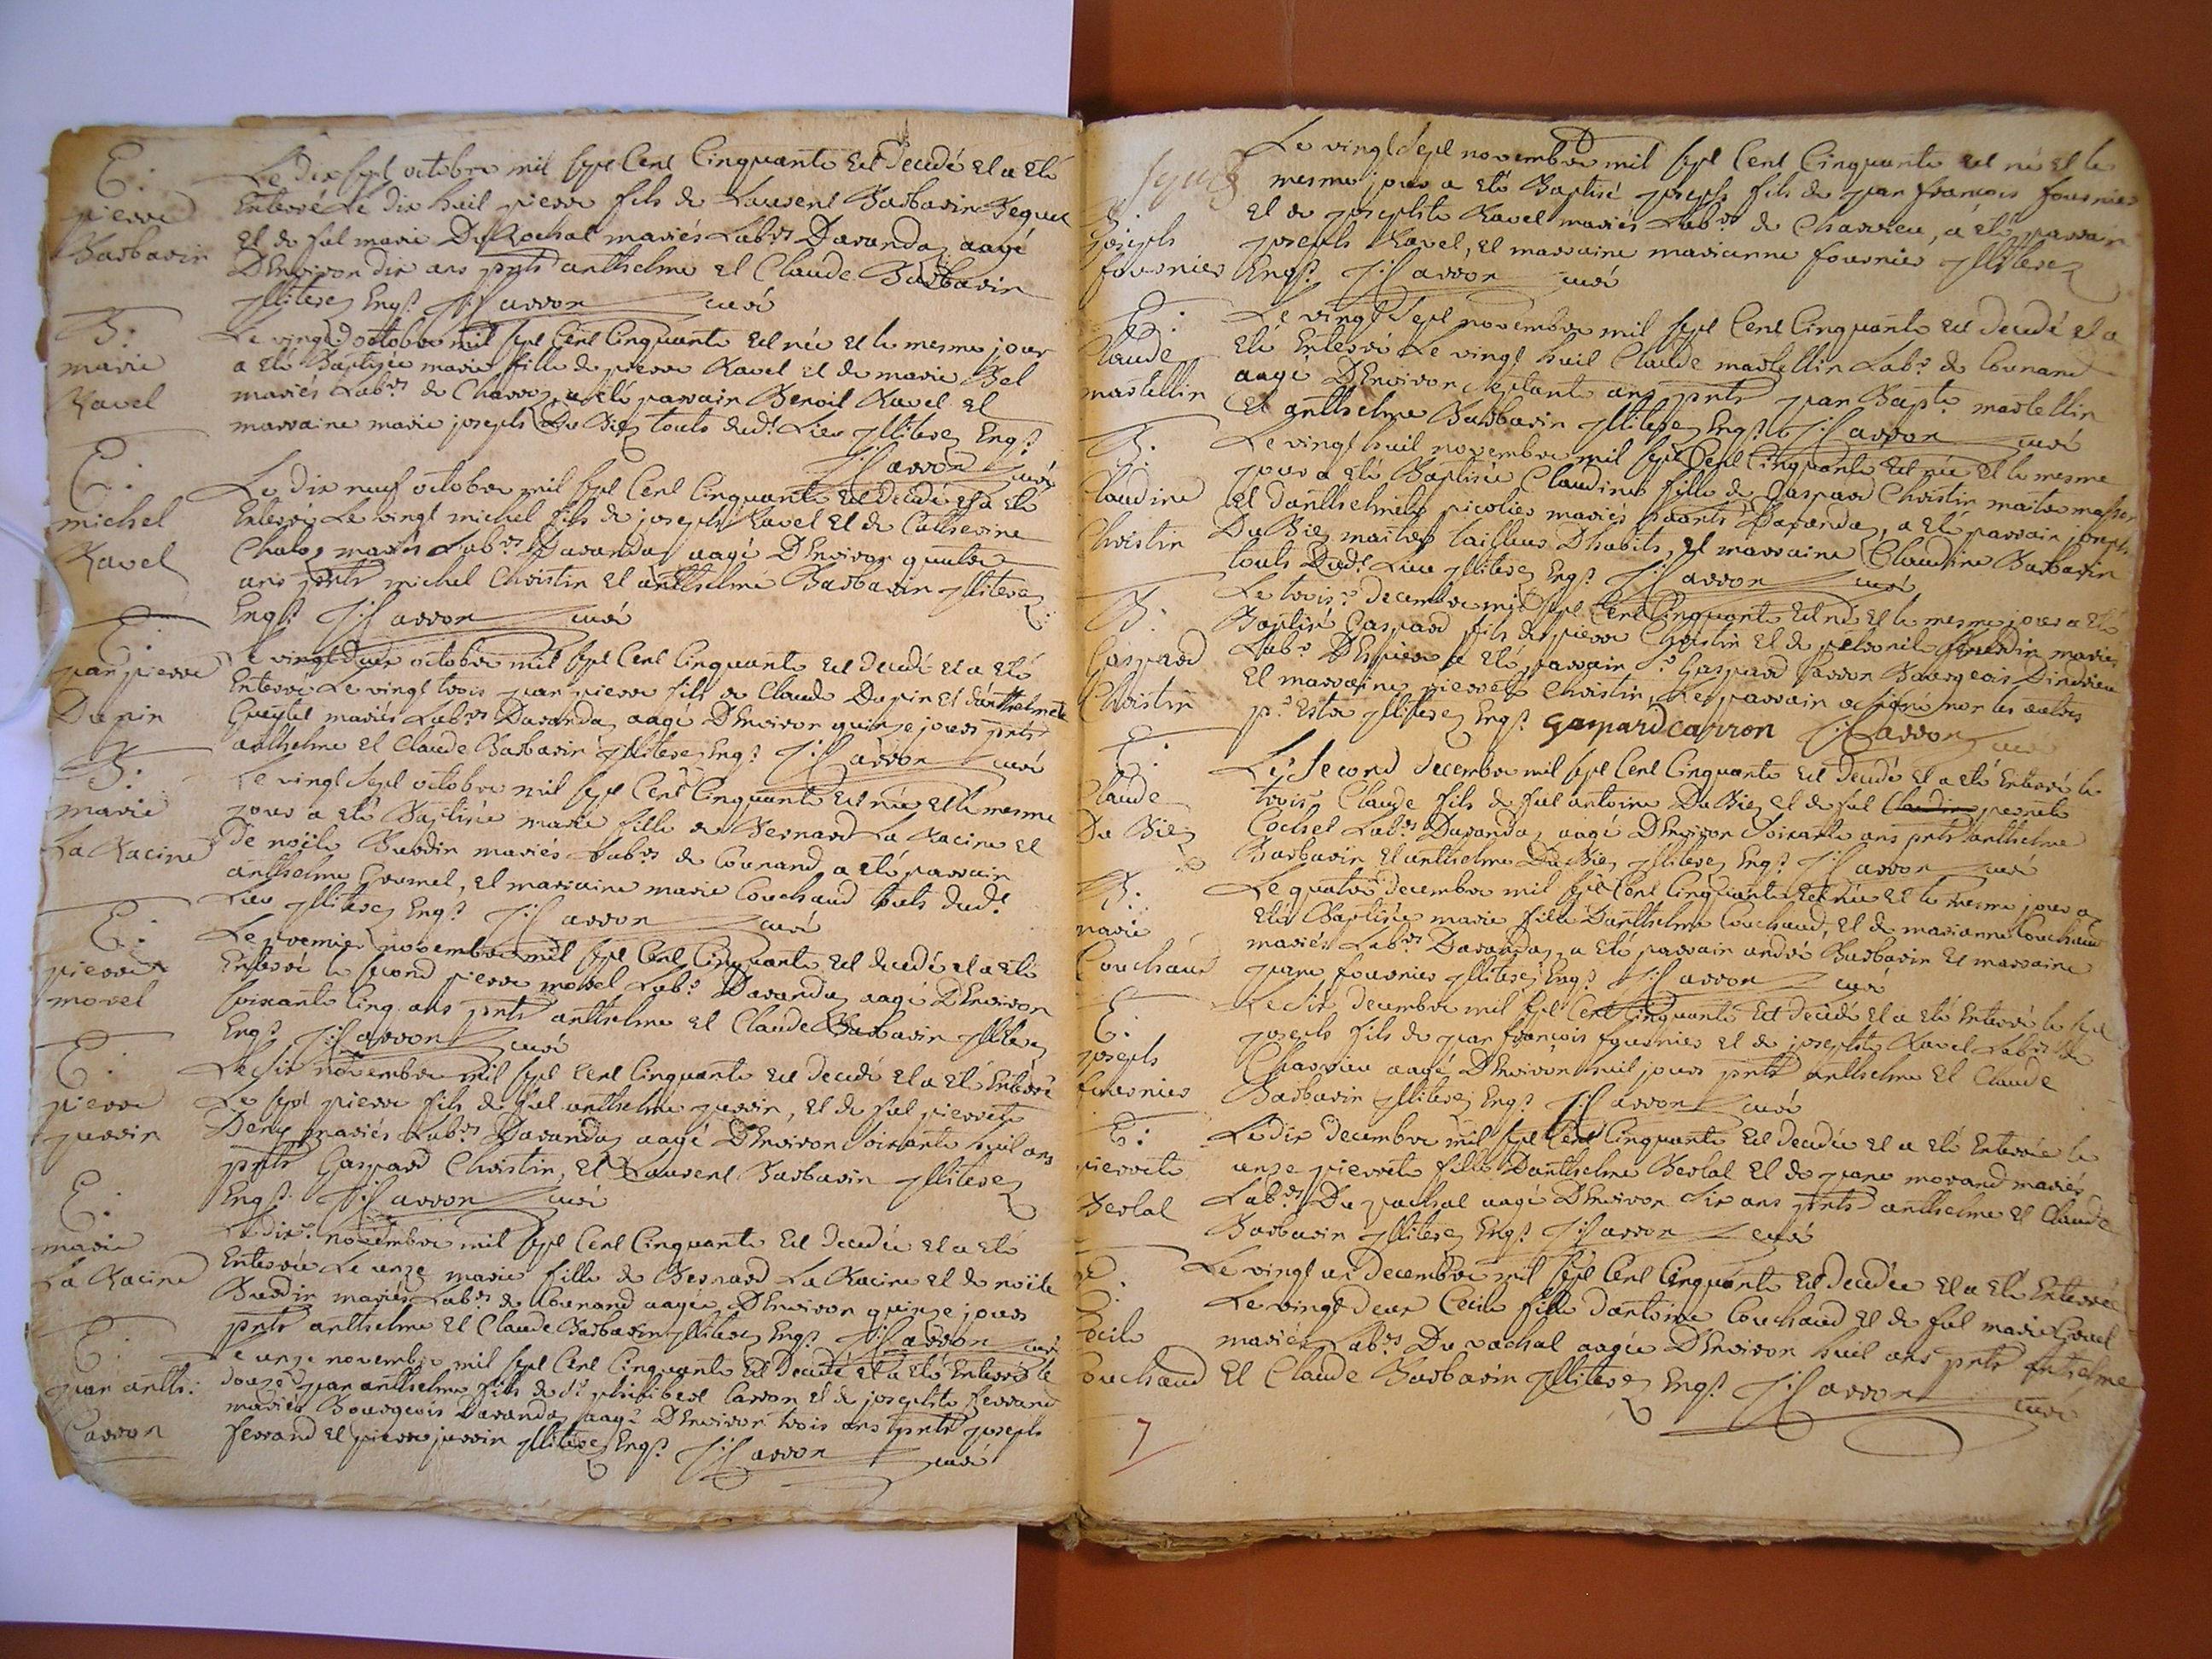 E.
pierre
Barbarin
Le dix sept octobre mil sept Cent Cinquante est decedé et a eté
Enterré Le dix huit pierre fils de Laurent Barbarin Bequet
et de fut marie Du Rochat mariés Labrs Daranda, aagé
D'Environ dix ans pnts anthelme et Claude Barbarin
Illiterez Enqs J: Carron curé
B.
marie
Ravet
Le vingt octobre mil sept Cent Cinquante est née et le mesme jour
a eté Baptizée marie fille de pierre Ravet et de marie Bel
mariés Labrs de Charvoz, a eté parrain Benoit Ravet et
marraine marie joseph Du Biez touts dudt Lieu Illiterez Enqs
J: Carron curé
E.
michel
Ravet
Le dix neuf octobre mil sept Cent Cinquante est decedé et a eté
Enterré Le vingt michel fils de joseph Ravet et de Catherine
mariés Labrs Daranda aagé D'Environ quatre
ans pnts michel Christin et anthelme Barbarin Illiterez
Enqs J: Carron curé
E.
jean pierre
Dupin
Le vingt deux octobre mil sept Cent Cinquante est decedé et a eté
Enterré Le vingt trois jean pierre fils de Claude Dupin et d'anthelmete
mariés Labrs Daranda, aagé D'Environ quinze jours pnts
anthelme et Claude Barbarin Illiterez Enqs J: Carron curé
B.
marie
La Racine
Le vingt sept octobre mil sept Cent Cinquante est née et le mesme
jour a eté Baptisée marie fille de Bernard La Racine et
De noële Burdin mariés Labrs de Counand a eté parrain
anthelme et marraine marie Couchaud touts dudt
Lieu Illiterez Enqs J: Carron curé
E.
pierre
morel
Le premier novembre mil sept Cent Cinquante est decedé et a eté
Enterré le second pierre morel Labr Daranda, aagé D'Environ
soixante Cinq ans pnts anthelme et Claude Barbarin Illiterez
Enqs J: Carron curé
E.
pierre
juvvin
Le six novembre mil sept Cent Cinquante est decedé et a eté Enterré
Le sept pierre fils de fut anthelme juvvin, et de fut pierrete
mariés Labrs Daranda, aagé D'Environ soixante huit ans
pnts Gaspard Christin, et Laurent Barbarin Illiterez
Enqs J: Carron curé
E.
marie
La Racine
Le dix novembre mil sept Cent Cinquante est decedée et a eté
Enterrée Le unze marie fille de Bernard La Racine et de noële
Burdin mariés Labrs de Counand aagée D'Environ quinze jours
pnts anthelme et Claude Barbarin Illiterez Enqs J: Carron curé
E.
jean anth:
Carron
Le unze novembre mil sept Cent Cinquante est decedé et a eté Enterré le
douze jean anthelme fils de Sr philibert Carron et de josephte ferrand
mariés Bourgeois Daranda, aagé D'Environ trois ans pnts joseph
ferrand et pierre juvvin Illiterez Enqs J: Carron curé
B.
joseph
fournier
Le vingt sept novembre mil sept Cent Cinquante est né et le
mesme jour a eté Baptisé joseph fils de jean françois fournier
et de josephte Ravet mariés Labrs de Charvieu, a eté parrain
joseph Ravet, et marraine marianne fournier Illiterez
Enqs J: Carron curé
E.
Claude
martellin
Le vingt sept novembre mil sept Cent Cinquante est decedé et a
eté Enterré Le vingt huit Claude martellin Labr de Counand
aagé D'Environ septante ans pnts jean Bapte martellin
et anthelme Barbarin Illiterez Enqs J: Carron curé
B.
Claudine
Christin
Le vingt huit novembre mil sept Cent Cinquante est née et le mesme
jour a eté Baptisée Claudine fille de Gaspard Christin maitre
et d'anthelmete picolier mariés Daranda, a eté parrain joseph
Du Biez maitre tailleur D'habits, et marraine Claudine Barbarin
touts Dudt Lieu Illiterez Enqs J: Carron curé
B.
Gaspard
Christin
Le trois decembre mil sept Cent Cinquante est né et le mesme jour a eté
Baptisé Gaspard fils de pierre Christin et de petronille Burdin mariés
Labrs a eté parrain Sr Gaspard Carron Bourgeois
et marraine pierrete Christin, Le parrain a signé non les autres
pr Estre Illiterez Enqs gaspard carron J: Carron curé
E.
Claude
Du Biez
Le second decembre mil sept Cent Cinquante est decedé et a eté Enterré le
trois Claude fils de fut antoine Du Biez et de fut Claudine pernete
Cochet Labrs Daranda, aagé D'Environ soixante ans pnts anthelme
Barbarin et anthelme Du Biez Illiterez Enqs J: Carron curé
B.
marie
Couchaud
Le quatre decembre mil sept Cent Cinquante est née et le mesme jour a
eté Baptisée marie fille D'anthelme Couchaud, et de marianne Couchaud
mariés Labrs Daranda, a eté parrain andré Barbarin et marraine
jeane fournier Illiterez Enqs J: Carron curé
E.
joseph
fournier
Le six decembre mil sept Cent Cinquante est decedé et a eté Enterré le sept
joseph fils de jean françois fournier et de josephte Ravet Labrs de
Charvieu aagé D'Environ huit jours pnts anthelme et Claude
Barbarin Illiterez Enqs J: Carron curé
E:
pierrete
Bertal
Le dix decembre mil sept Cent Cinquante est decedée et a eté Enterrée le
unze pierrete fille D'anthelme Bertal et de jeane morand mariés
Labrs Du vachat aagée D'Environ six ans pnts anthelme et Claude
Barbarin Illiterez Enqs J: Carron curé
E.
Cecile
Couchaud
Le vingt un decembre mil sept Cent Cinquante est decedée et a eté Enterrée
Le vingt deux Cecile fille d'antoine Couchaud et de fut marie
mariés Labrs Du vachat aagée D'Environ huit ans pnts anthelme
et Claude Barbarin Illiterez Enqs J: Carron
curé
7